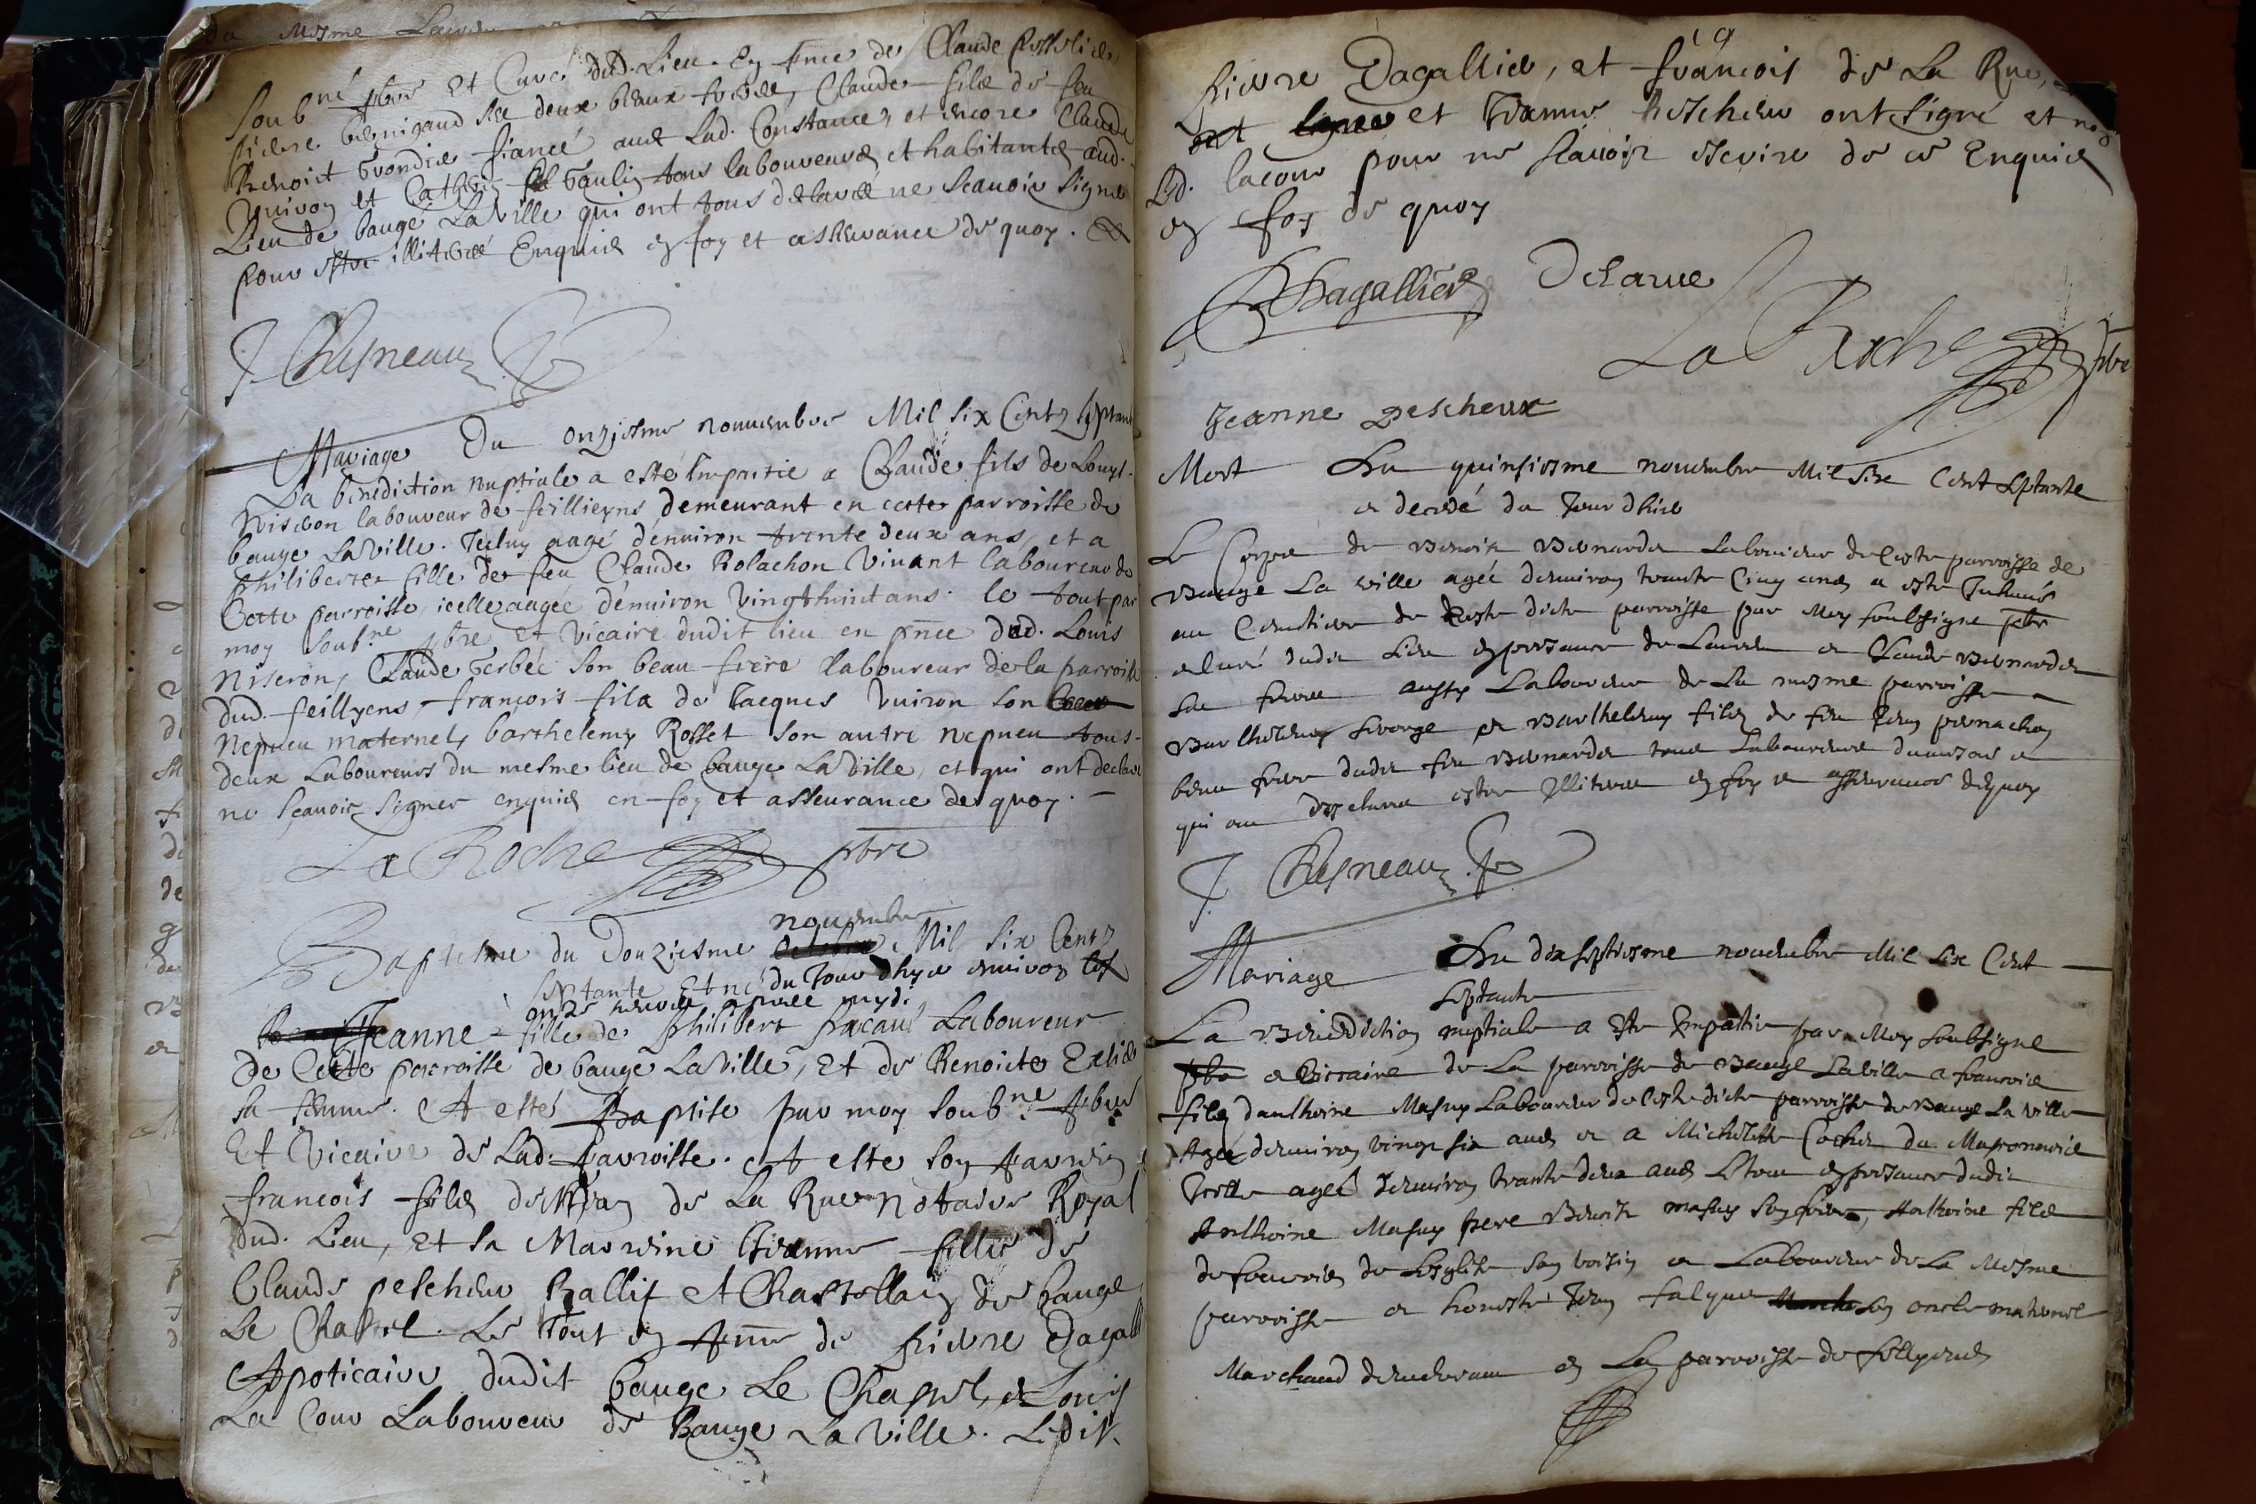 du mesme
soub.né pbre Et Curé dud. Lieu. En pnce de Claude
pierre beenigaud ses deux beaux freres, Claude fils de feu
Benoict Grondier fiancé auec Lad. Constance, et encore Claude
Vuiron et Cathrin Paulin tous laboureurs et habitants aud.
Lieu de baugé La Ville qui ont tous declaré ne scauoir signer
pour estre illiterés Enquis en foy et asseurance de quoy.
J. Chesneau
Mariage Du onziesme nouuembre Mil six Cents Septante
La benediction nuptiale a esté Impartie a Claude fils de Louys
Niseron laboureur de feilliens demeurant en cette parroisse de
bauge La Ville. Iceluy aagé d'enuiron trente deux ans, et a
philiberte fille de feu Claude Rolachon Viuant laboureur de
Cette parroisse, icelle aagée d'enuiron Vingthuict ans. le tout par
moy soub.né pbre et Vicaire dudit lieu en pnce dud. Louis
Niseron, Claude Gerbée son beau-frere laboureur de la parroisse
dud. feillyens, francois fils de Jacques Vuiron son
Nepueu maternel, barthelemy Rosset son autre nepueu tous
deux Laboureurs du mesme lieu de bauge La Ville, et qui ont declaré
ne sçauoir signer enquis en foy et asseurance de quoy.
La Roche pbre
nouembre
Baptesme du Douziesme octobre Mil six Cents
septante Et né du Jour dhyer enuiron les
onze heures apres mydi
Jeanne fille de philibert pacaud Laboureur
De Cette parroisse de baugé La Ville, Et de Benoicte Extier
sa femme. A esté Baptise par moy soub.né pbre
Et Vicaire de Lad. parroisse. A esté son parrin
francois fils de Jean de La Rue notaire Royal
dud. Lieu, Et sa Marrine Jeanne fille de
Claude pescheur Ballif et Chastellain de bauge
Le Chastel. Le Tout en pnce de pierre Dagall
Apoticaire dudit bauge Le Chastel, et Louis
La Cour Laboureur de Bauge La Ville. Ledit
19
pierre Dagallier, et francois de La Rue,
ont signé et Jeanne Pescheur ont signé et non
Led. lacour pour ne scauoir escrire de ce Enquis
en foy de quoy
Dagallier Delarue
La Roche pbre
Jeanne Pescheur
Mort Du quinsiesme nouembre Mil six Cent Septante
et decedé du Jour dhier
Le Corps de Benoit Bernardet Laboureur de Ceste parroisse de
Bauge La Ville agée denuiron trante Cinq ans a este Inhumé
au Cemetiere de Ceste dicte parroisse par Moy soubsigne pbre
et curé dudit Lieu en presance de Laurent et Claude Bernardet
ses freres aussy Laboureur de La mesme parroisse
Barthelemy George et Barthelemy fils de feu Jean pernachon
beau frere dudit feu Bernardet tous Laboureurs dumesme et
qui ont desclaré estre Illiteres en foy et asseurance dequoy
J. Chesneau
Mariage Du dix septiesme nouembre Mil six Cent
Septante
La Benediction nuptiale a Este Impartie par Moy soubsigne
pbre et Viccaire de La parroisse de Bauge La Ville a francois
fils danthoine Masuy Laboureur de Ceste dicte parroisse de Bauge La Ville
Agé denuiron vingt six ans et a Michelette Cochet du
Icelle ageé denuiron trante deux ans Le tout en presance dudit
Anthoine Masuy pere Benoit masuy son frere, Anthoine fils
de francois de Lesglise son voisin et Laboureur de La Mesme
parroisse et honeste Jean falque son oncle maternel
Marchand demeurant en La parroisse de fellyens